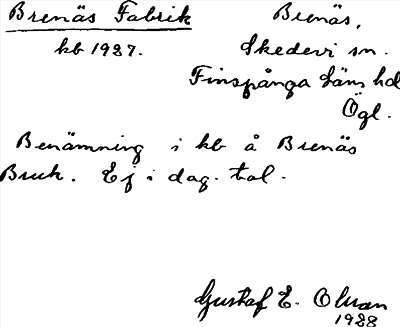 Brenäs Fabrik
kb 1927.
Brenäs,
Skedevi sn.
Finspånga läns hd
Ögl.
Benämning i kb å Brenäs
Bruk. Ej i dag. tal.
Gustaf E. Olson
1928